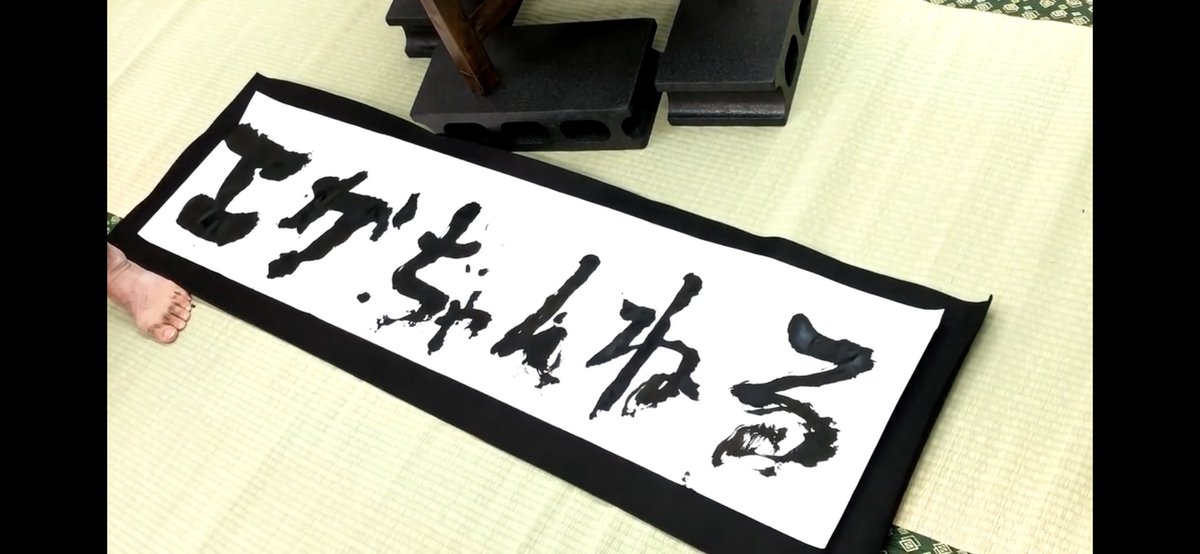 エガちゃんねる